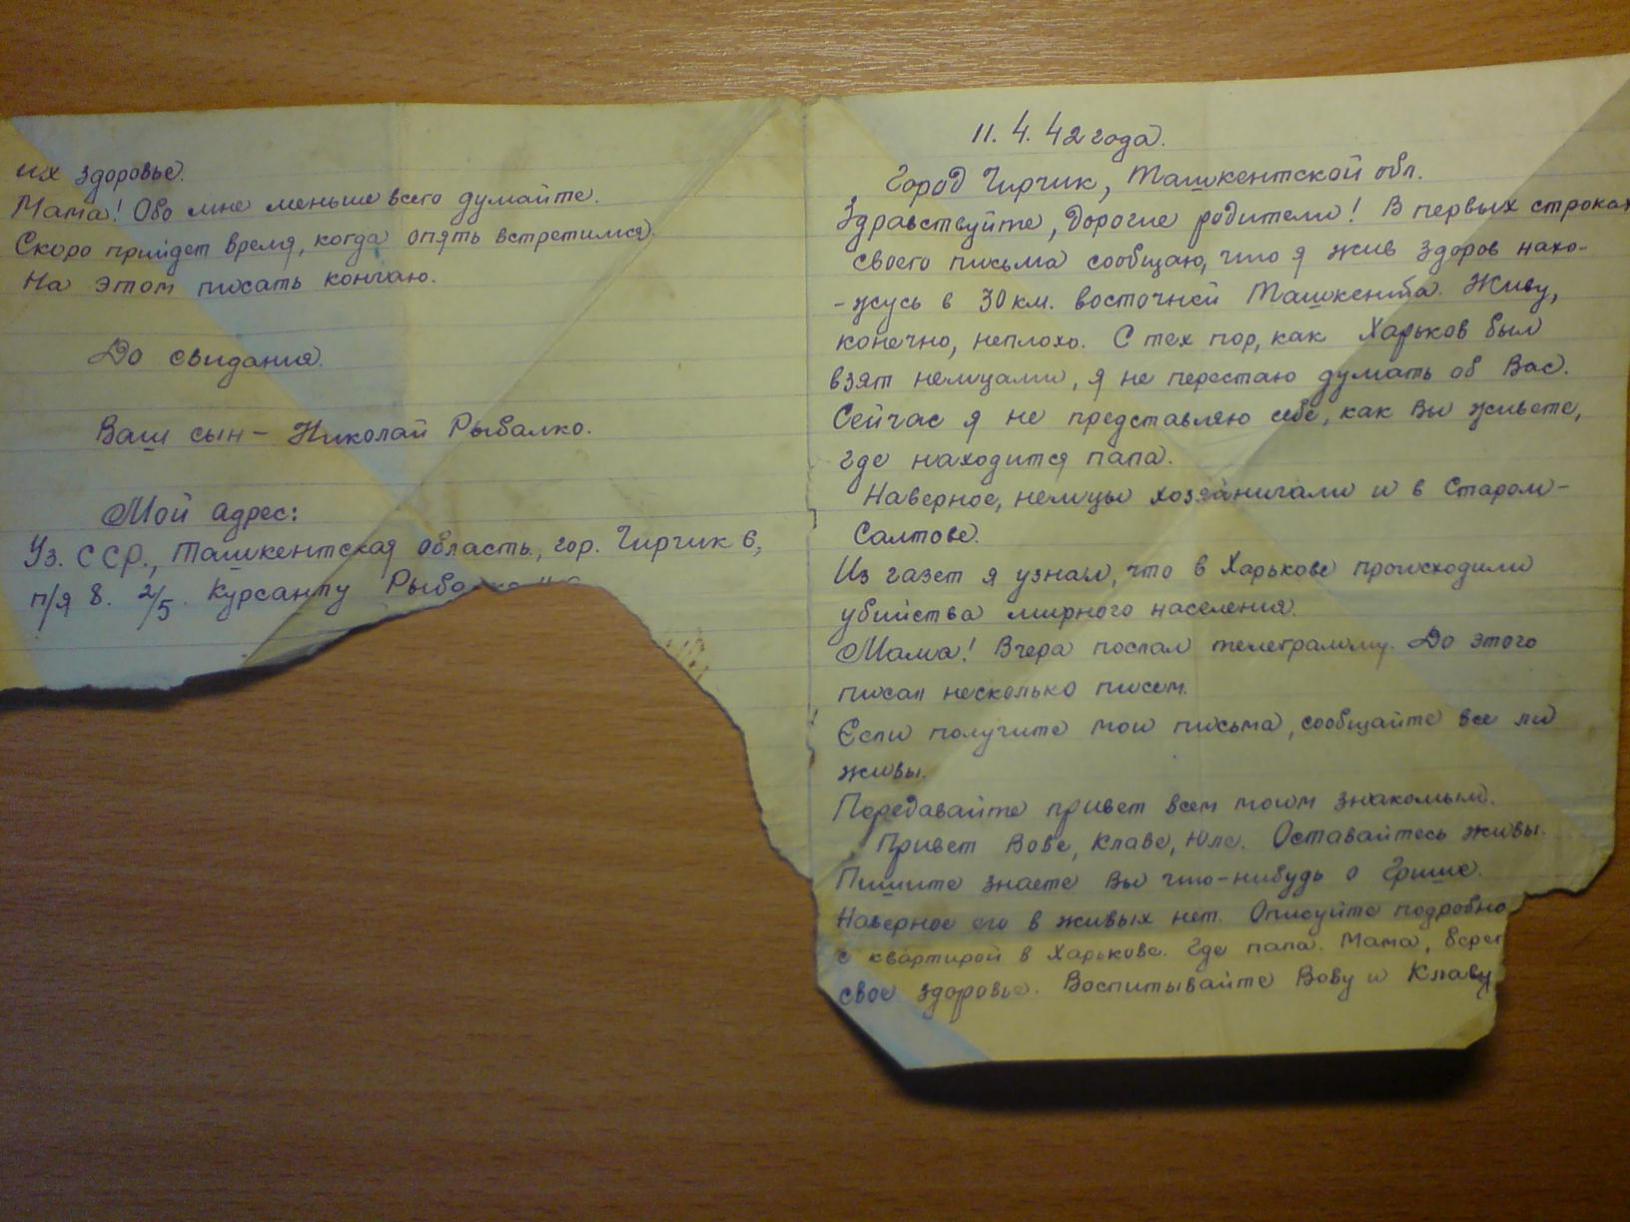 11. 4. 42 года.
Город Чирчик, Ташкентской обл.
Здравствуйте, дорогие родители! В первых строках
своего письма сообщаю, что я жив здоров нахо-
-жусь в 30 км. восточней Ташкента. Живу,
конечно, неплохо. С тех пор, как Харьков был
взят немцами, я не перестаю думать об Вас.
Сейчас я не представляю себе, как Вы живете,
где находится папа.
Наверное, немцы хозяйничали и в Старом-
Салтове.
Из газет я узнал, что в Харькове происходили
убийства мирного населения.
Мама! Вчера послал телеграмму. До этого
писал несколько писем.
Если получите мои письма, сообщайте все ли
живы.
Передавайте привет всем моим знакомым.
Привет Вове, Клаве, Юле. Оставайтесь живы.
Пишите знаете Вы что-нибудь о Грише.
Наверное его в живых нет. Описуйте подробно
с квартирой в Харькове. Где папа. Мама, берег
свое здоровье. Воспитывайте Вову и Клаву
их здоровье.
Мама! Обо мне меньше всего думайте.
Скоро прийдет время, когда опять встретимся.
На этом писать кончаю.
До свидания.
Ваш сын - Николай Рыбалко.
Мой адрес:
Уз. ССР., Ташкентская область., гор. Чирчик 6,
п/я 8. 2/5. Курсанту Рыбалко